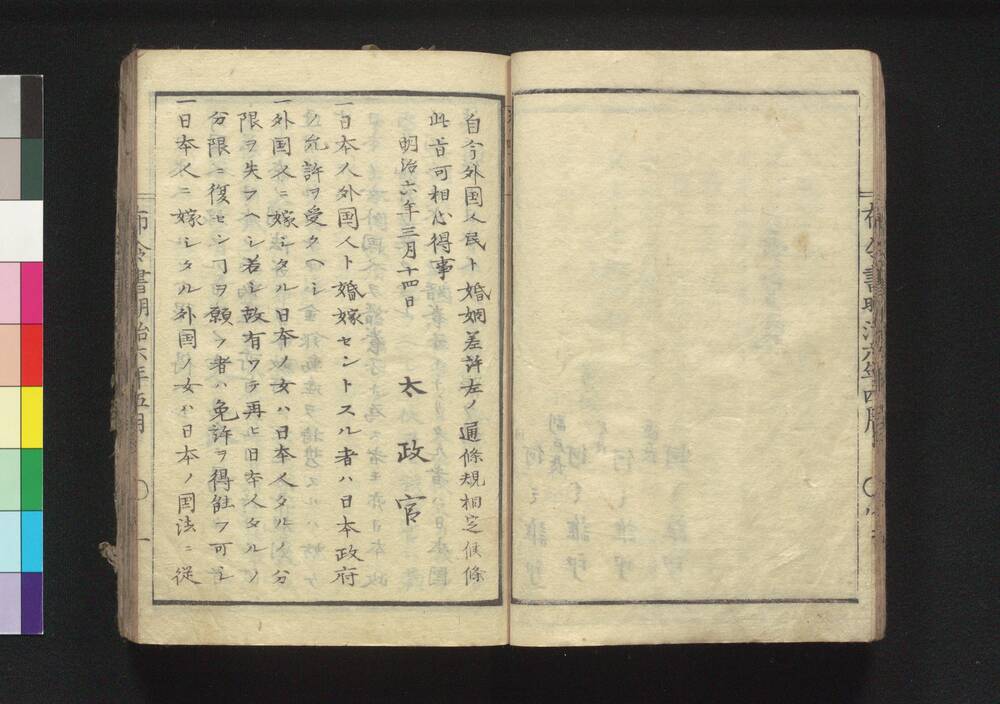 自今外国人民ト婚姻差許左ノ通條規相定候條
此旨可相心得事
明治六年三月十四日
太政官
一日本人外国人ト婚嫁セントスル者ハ日本政府
ノ允許ヲ受クヘシ
一外国人ニ嫁シタル日本ノ女ハ日本人タルノ分
限ヲ失フヘシ若シ故有ツテ再ヒ旧本人タルノ
分限ニ復センヿヲ願フ者ハ免許ヲ得能フ可シ
一日本人ニ嫁シタル外国ノ女ハ日本ノ国法ニ従
布令書明治六年五月 〇 一
布令書明治六年四月